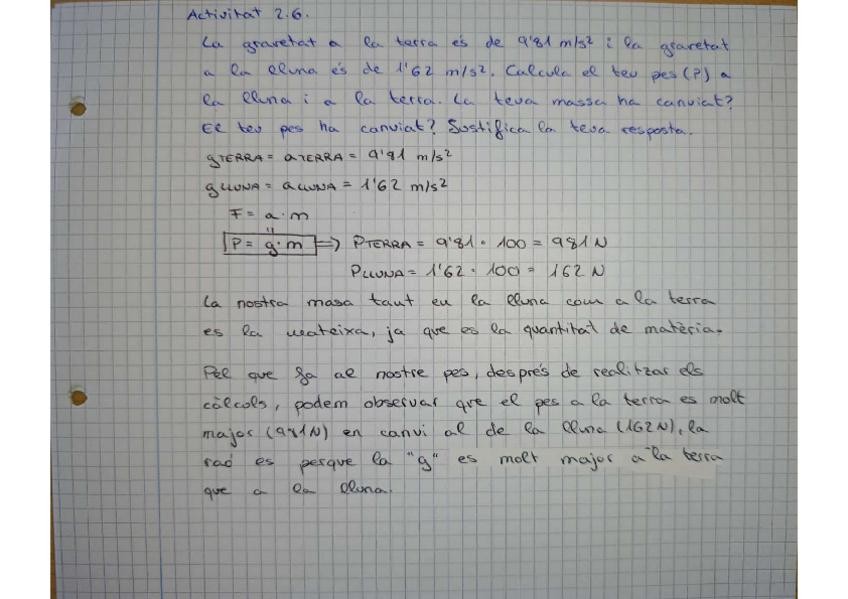 Activitat 2.6.
La gravetat a la terra és de 9'81 m/s² i la gravetat
a la lluna és de 1'62 m/s². Calcula el teu pes (P) a
la lluna i a la terra. La teva massa ha canviat?
El teu pes ha canviat? Justifica la teva resposta.
gTERRA = aTERRA = 9'81 m/s²
gLLUNA = aLLUNA = 1'62 m/s²
F = a · m
"
P = g · m => PTERRA = 9'81 · 100 = 981 N
PLLUNA = 1'62 · 100 = 162 N
La nostra masa tant en la lluna com a la terra
es la mateixa, ja que es la quantitat de matèria.
Pel que fa al nostre pes, després de realitzar els
càlcols, podem observar que el pes a la terra es molt
major (981N) en canvi al de la lluna (162N), la
raó es perque la "g" es molt major a la terra
que a la lluna.